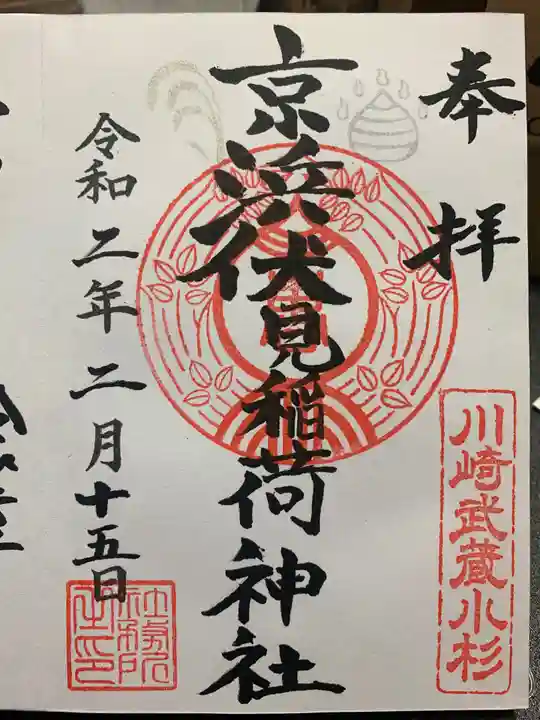 奉拝
川崎武蔵小杉
京浜伏見稲荷神社
令和二年二月十五日
社務所之印